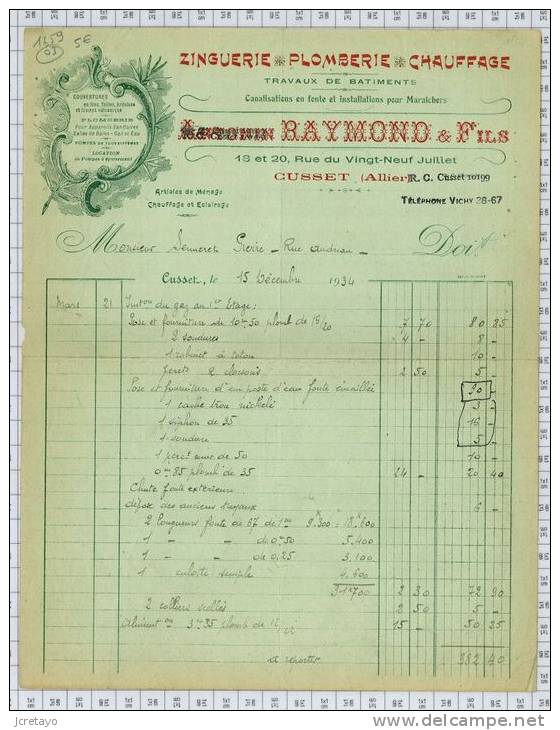 1259
03
5€
ZINGUERIE * PLOMBERIE * CHAUFFAGE
TRAVAUX DE BATIMENTS
Canalisations en fonte et Installations pour Maraîchers
RAYMOND & FILS
18 et 20, Rue du Vingt-Neuf Juillet
CUSSET (Allier) R. C. Cusset 10199
TÉLÉPHONE VICHY 28-67
COUVERTURES
en Zinc, Tuiles, Ardoises
et Ciment volcanique
PLOMBERIE
Pour Appareils Sanitaires
Salles de Bains - Gaz et Eau
POMPES DE TOUS SYSTÈMES
LOCATION
de Pompes à épuisement
Articles de Ménage
Chauffage et Eclairage
Monsieur Pierre - Rue - Doit
Cusset, le 15 Décembre 1934
Mars 21 du gaz au 1er Etage :
Pose et fourniture de 10m50 plomb de 15/20 7 70 80 85
2 soudures 4 - 8 -
1 robinet à 10 -
2 50 5 -
Pose et fourniture d'un poste d'eau fonte émaillée 90 -
1 cache trou nickelé 3 -
1 siphon de 35 16 -
1 soudure 5 -
1 perct mur de 50 10 -
0m85 plomb de 35 24 - 20 40
Chute fonte extérieure
dépose des anciens tuyaux 6 -
2 longueurs fonte de 67 de 1m 9.300 = 18.600
1 - - de 0m50 5.400
1 - - de 0,25 3.100
1 culotte simple 4.600
31.700 2 30 72 90
2 colliers scellés 2 50 5 -
3m35 plomb de 15 - 50 25
à reporter 382 40
jcretayo
www.delcampe.net